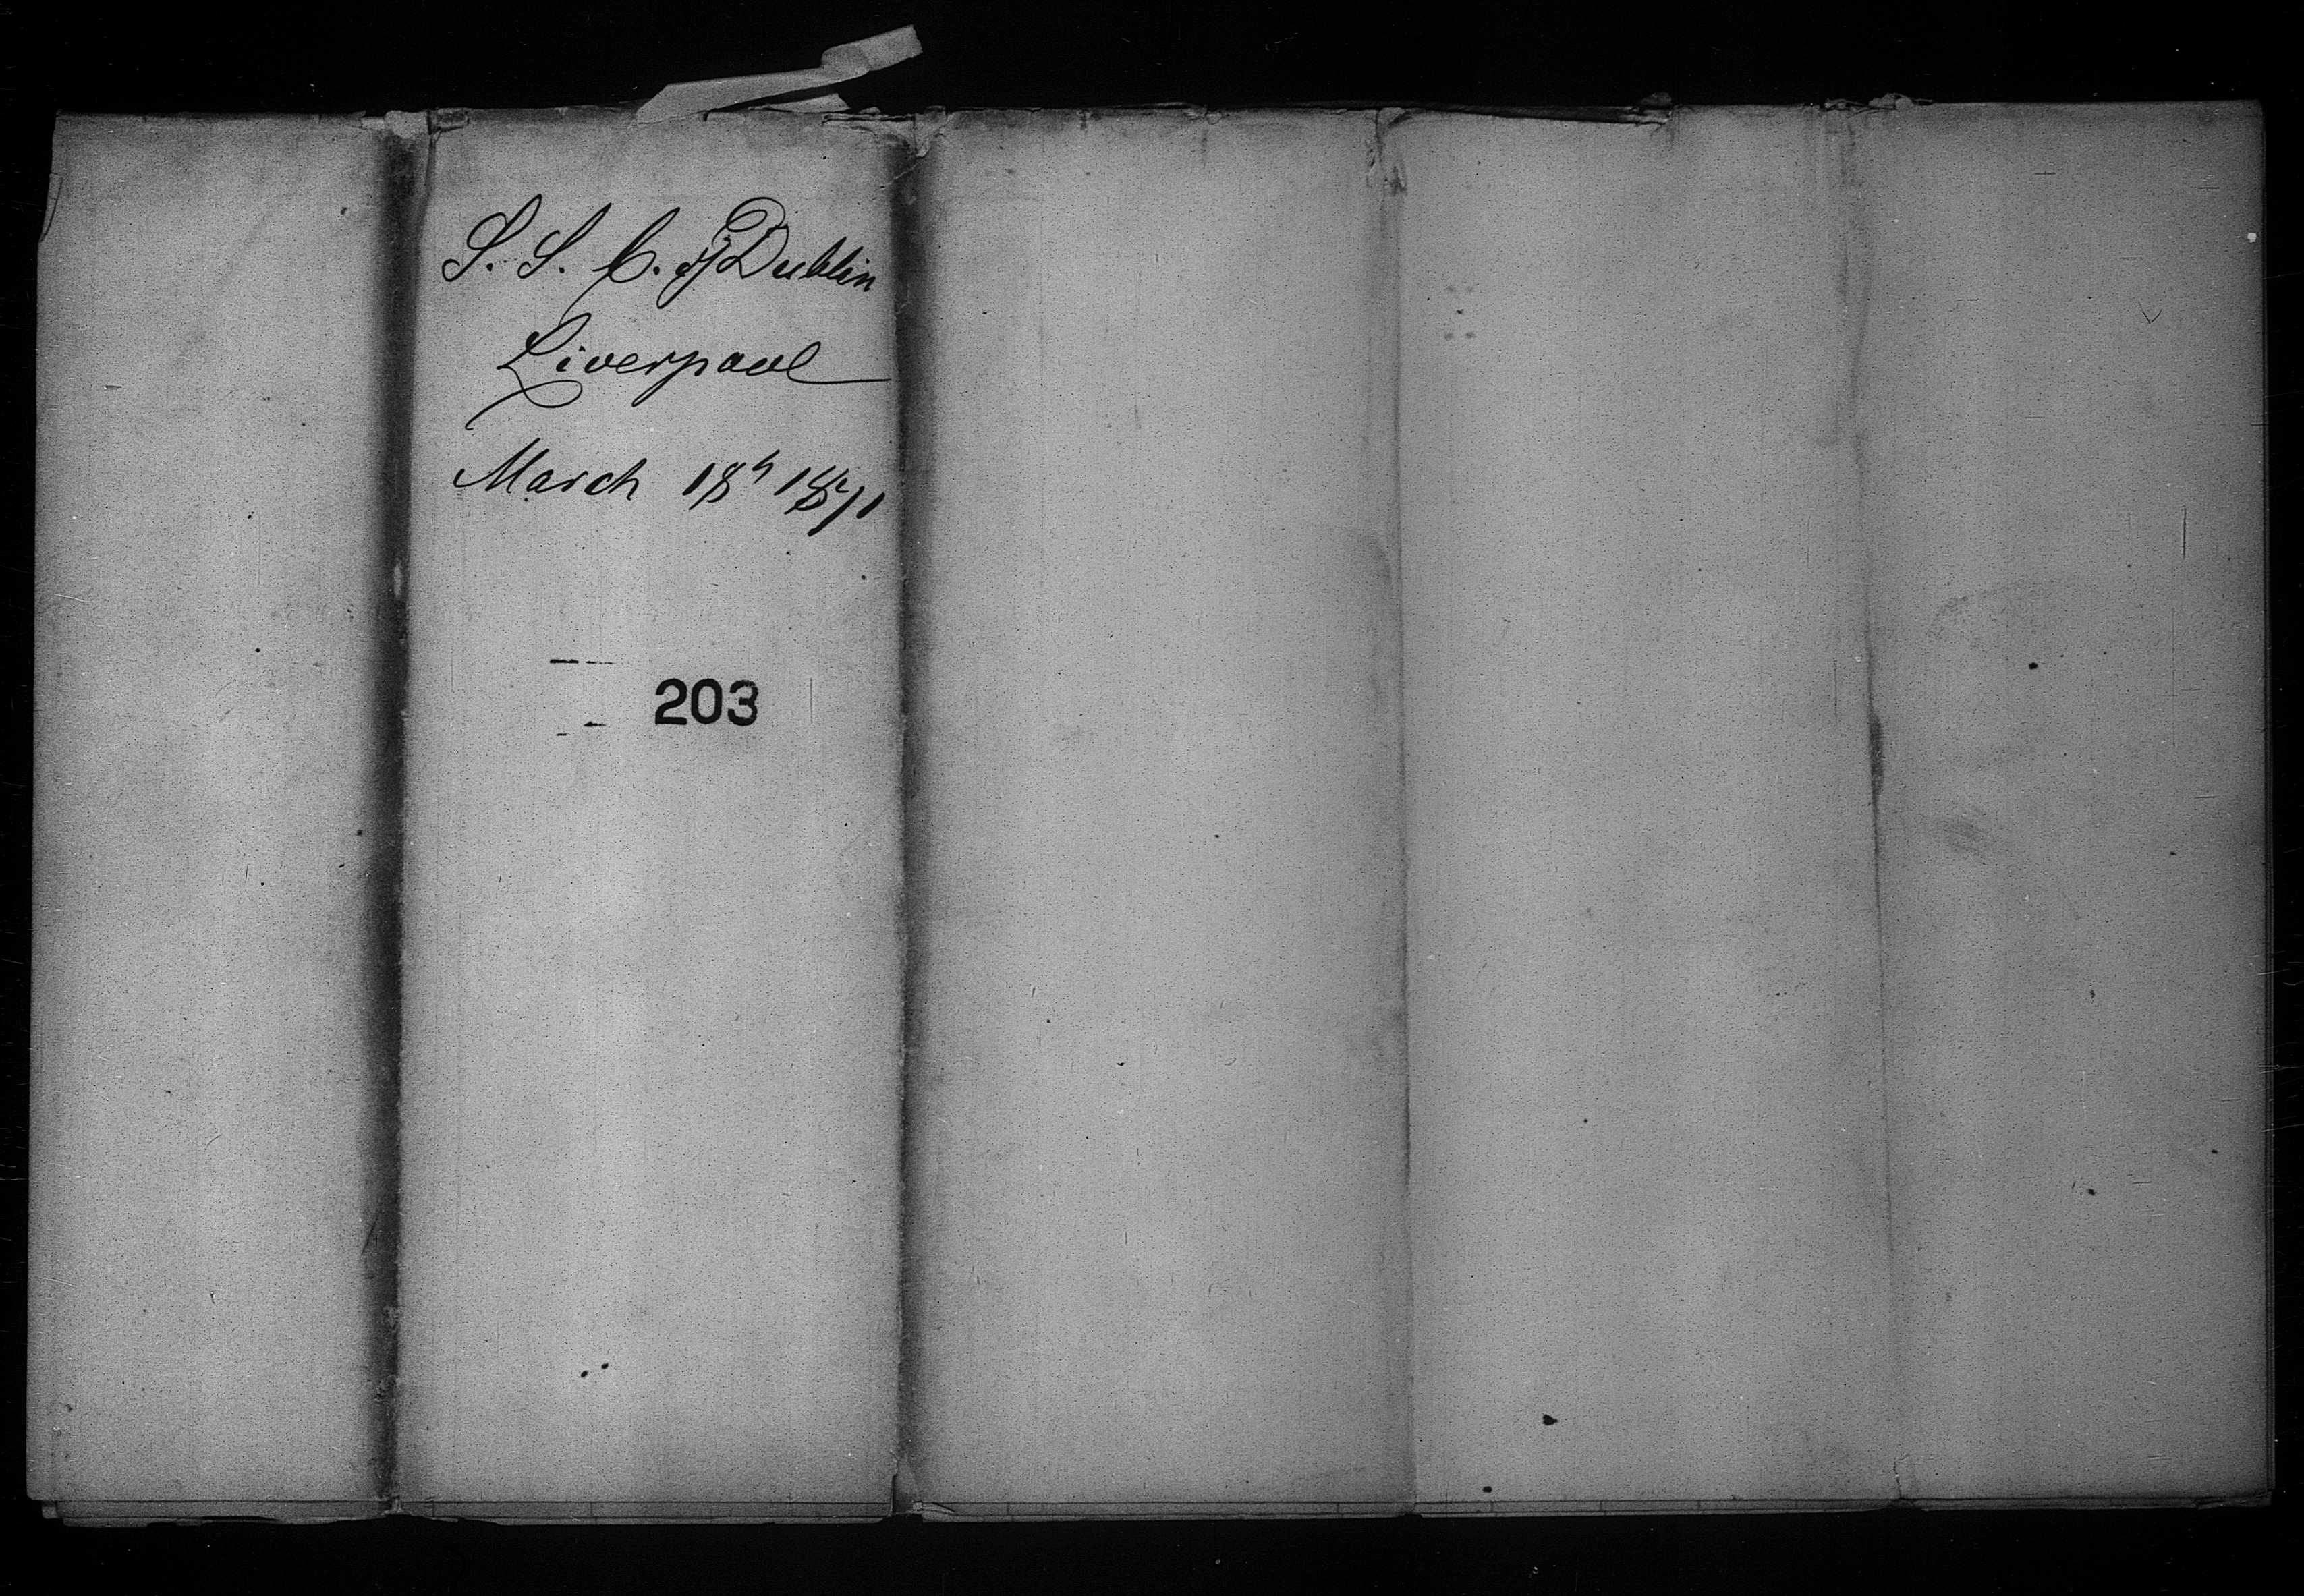 S. S. C. of Dublin
Liverpool
March 18th 1871
203